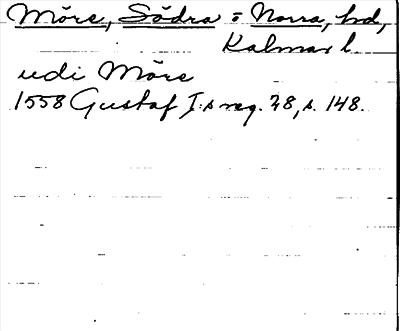 Möre, Södra o Norra, hd,
Kalmar l.
udi Möre
1558 Gustaf I:s reg. 28, s. 148.